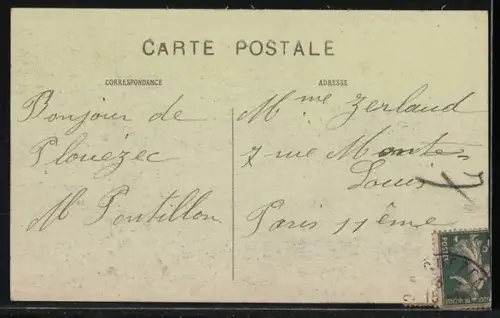 CARTE POSTALE
CORRESPONDANCE
ADRESSE
Bonjour de
Plouézec
M Pontillon
Mme Zerlaud
7 rue Monte=
Louis
Paris 11ème
POSTES